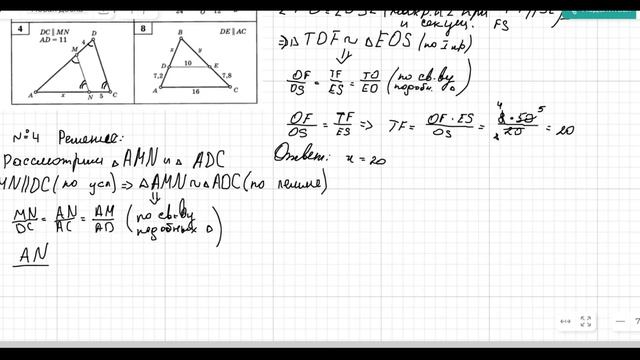 4
DC ∥ MN
AD = 11
D
4
M
A
x
N
5
C
8
DE ∥ AC
B
x
y
D
10
E
7,2
7,8
A
16
C
и секущ. FS
⇒ △ TOF ∾ △ EOS (по I пр)
⇓
OF/OS = TF/ES = TO/EO (по св-ву подобн. △)
OF/OS = TF/ES ⇒ TF = OF · ES/OS = 8 · 50/20 = 20
4
5
2
Ответ: x = 20
№4 Решение:
Рассмотрим △ AMN и △ ADC
MN∥DC (по усл) ⇒ △ AMN ∾ △ ADC (по лемме)
⇓
MN/DC = AN/AC = AM/AD (по св-ву подобных △)
AN